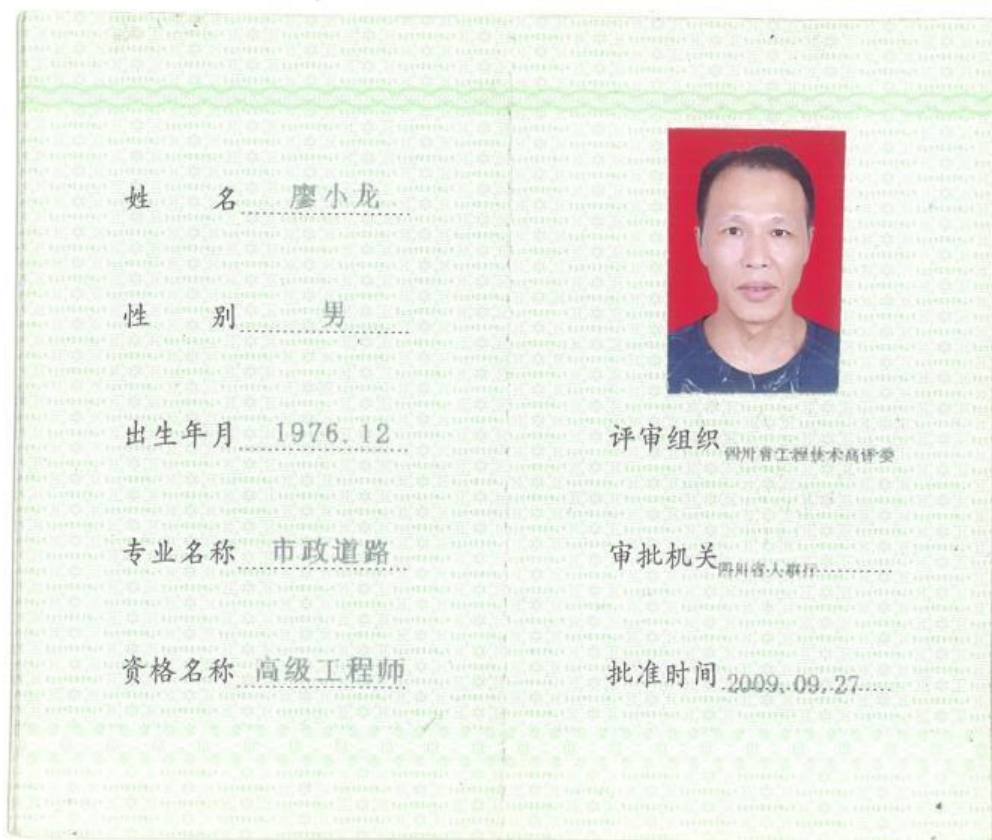 姓 名 廖小龙
性 别 男
出生年月 1976.12
专业名称 市政道路
资格名称 高级工程师
评审组织 四川省工程技术高评委
审批机关 四川省人事厅
批准时间 2009.09.27